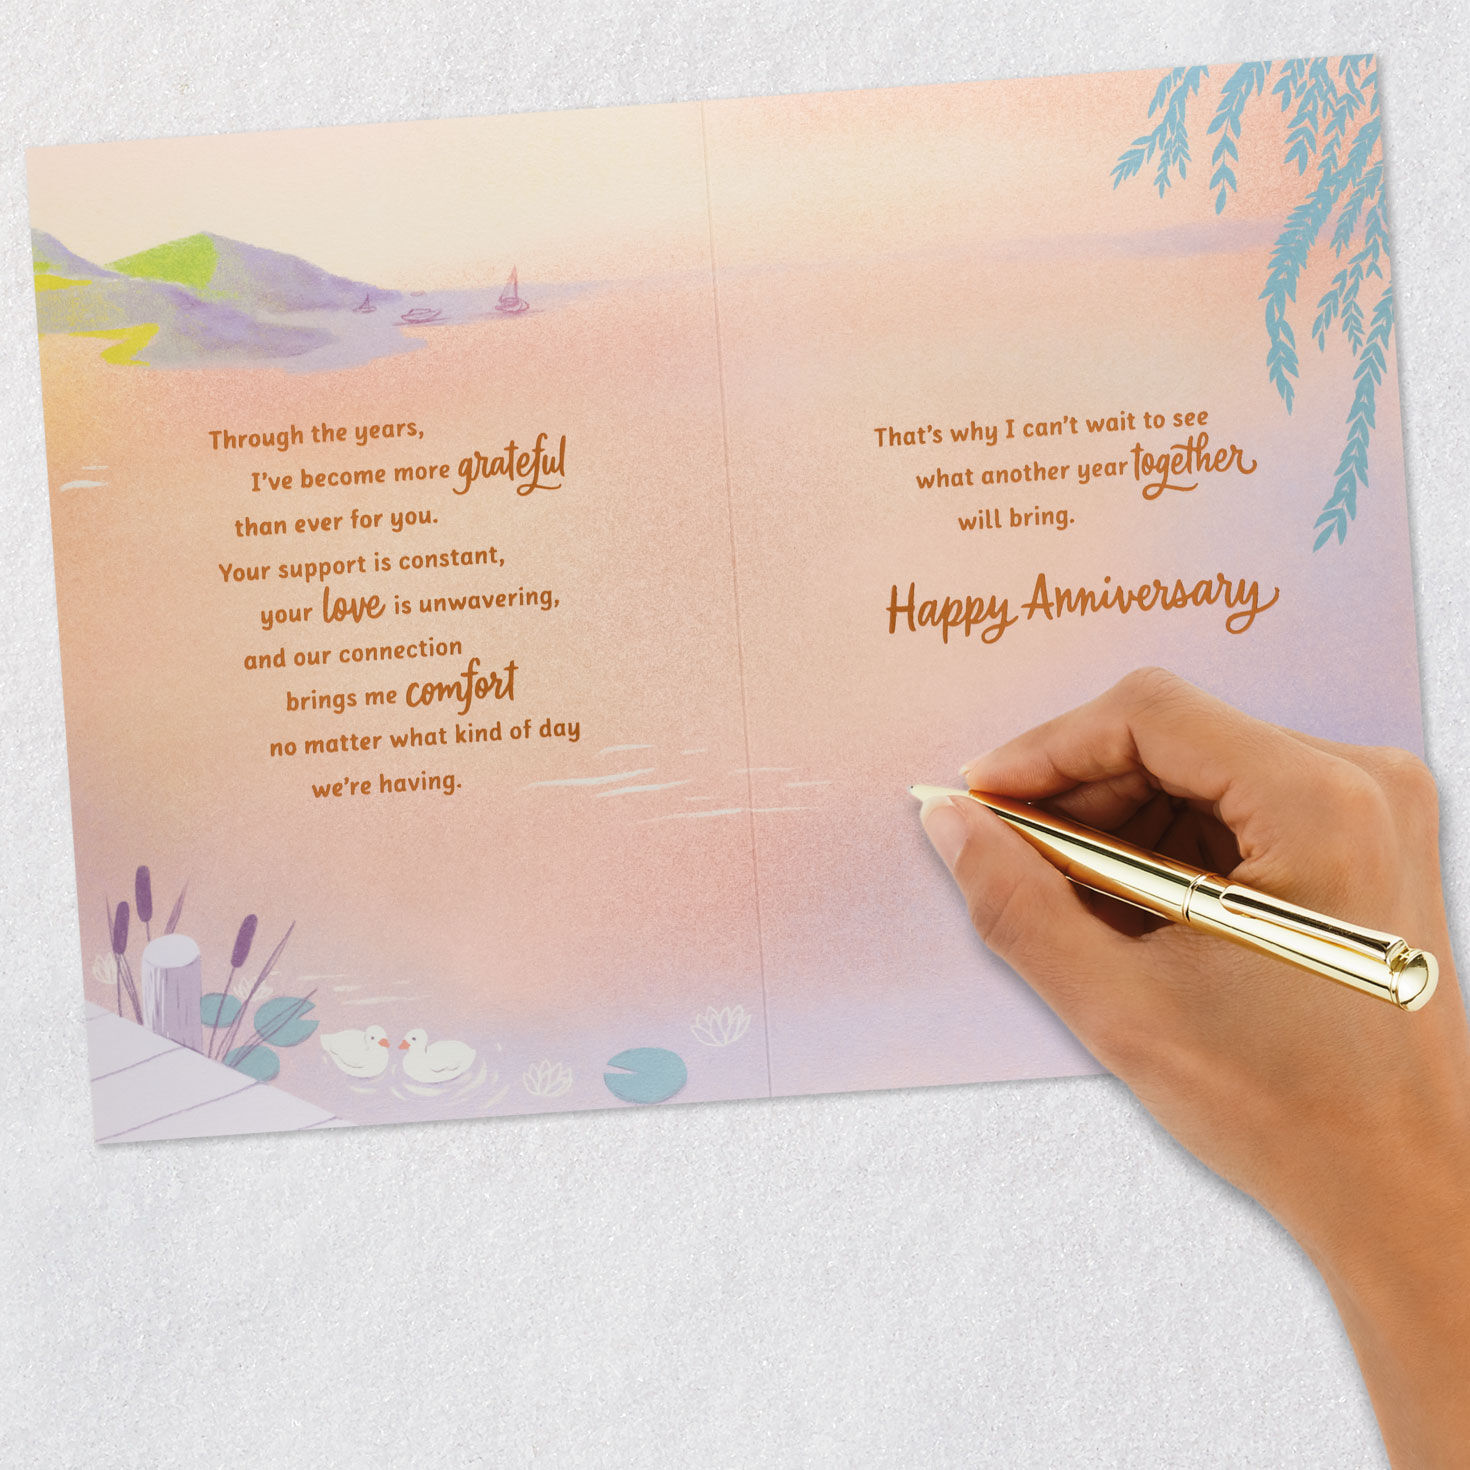 Through the years,
I've become more grateful
than ever for you.
Your support is constant,
your love is unwavering,
and our connection
brings me comfort
no matter what kind of day
we're having.
That's why I can't wait to see
what another year together
will bring.
Happy Anniversary